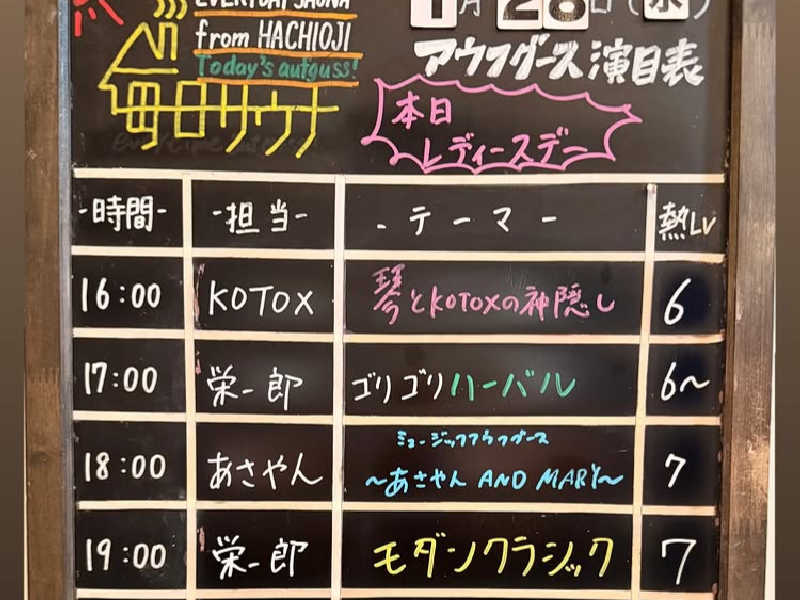 EVERYDAY SAUNA
from HACHIOJI
Today's aufguss!
毎日サウナ
1月28日(水)
アウフグース演目表
本日
レディースデー
-時間- -担当- -テーマー 熱LV
16:00 KOTOX 琴とKOTOXの神隠し 6
17:00 栄一郎 ゴリゴリハーバル 6~
18:00 あさやん ミュージックアウフグース
~あさやん AND MARY~ 7
19:00 栄一郎 モダンクラシック 7